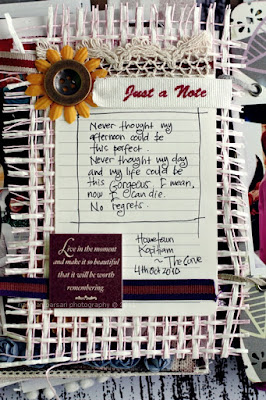 Just a Note
Never thought my
afternoon could be
this perfect.
Never thought my day
and my life could be
this Gorgeous, I mean,
now I can die.
No regrets.
Hometown
~ The Curve
4th Oct 2010
Live in the moment
and make it so beautiful
that it will be worth
remembering.
arsan photography ©